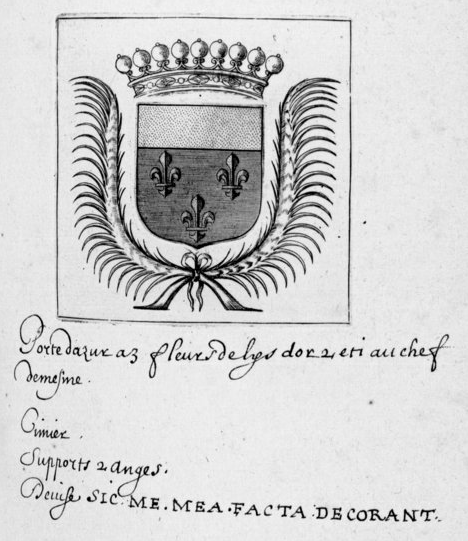 Porte dazur a 3 fleurs de lys dor 2 et 1 au chef
demesme.
Cimier.
Supports 2 anges.
Devise SIC. ME. MEA. FACTA DECORANT.